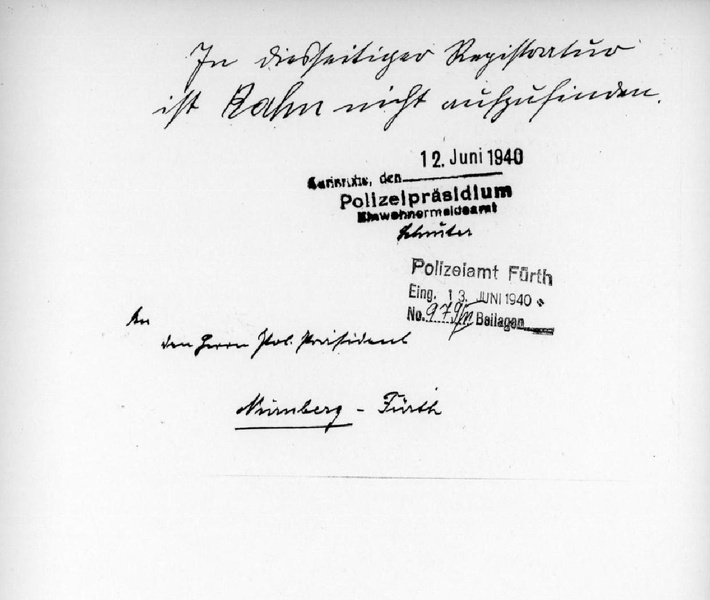 In diesseitiger Registratur
ist Kahn nicht aufzufinden.
12. Juni 1940
Karlsruhe, den
Polizeipräsidium
Einwohnermeldeamt
Polizeiamt Fürth
Eing. 13. JUNI 1940
No. 979/ Beilagen
An
den Herrn Pol. Präsident
Nürnberg - Fürth